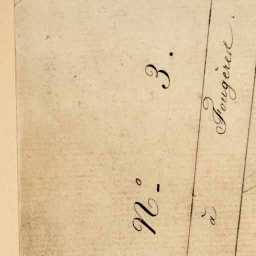 N.º 3.
à Fougères.